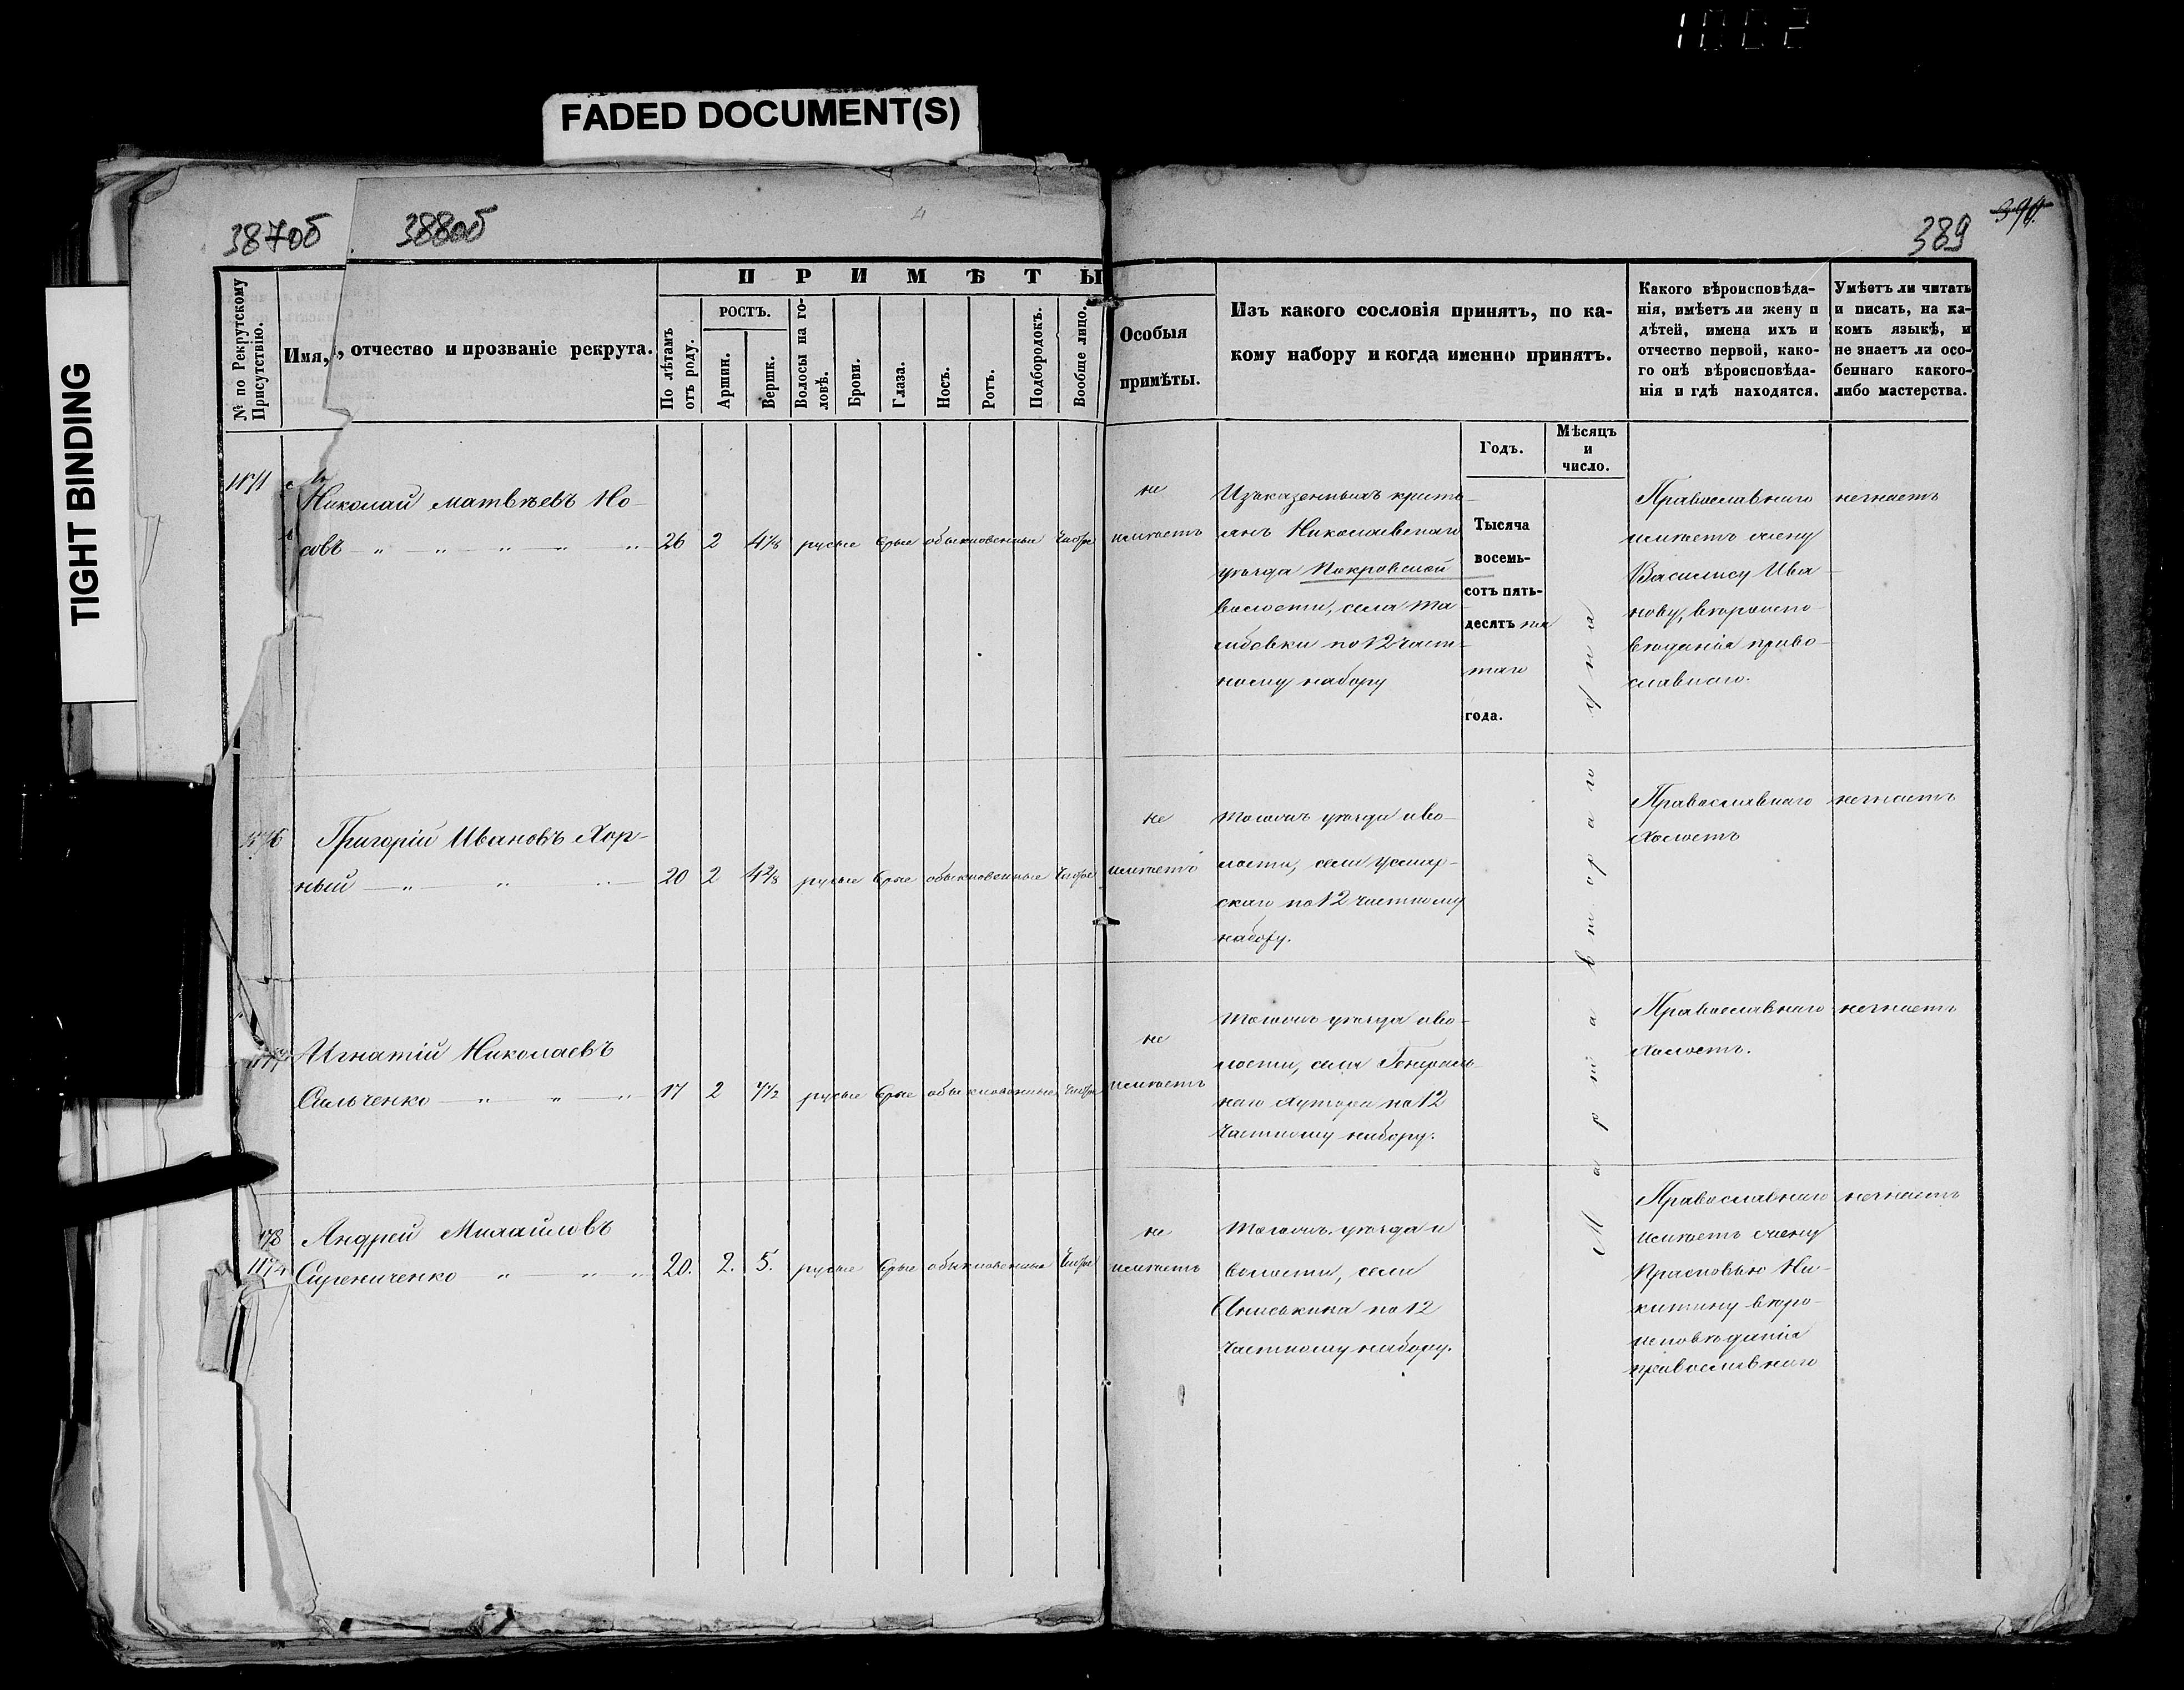 1002
FADED DOCUMENT(S)
TIGHT BINDING
387об
388об
389
390.
№ по Рекрутскому Присутствію.
Имя, отчество и прозваніе рекрута.
ПРИМѢТЫ
По лѣтамъ отъ роду.
РОСТЪ.
Аршин.
Вершк.
Волосы на головѣ.
Брови.
Глаза.
Носъ.
Ротъ.
Подбородокъ.
Вообще лицо.
Особыя
примѣты.
Изъ какого сословія принятъ, по ка-
кому набору и когда именно принятъ.
Годъ.
Мѣсяцъ
и
число.
Какого вѣроисповѣда-
нія, имѣетъ ли жену и
дѣтей, имена ихъ и
отчество первой, како-
го онѣ вѣроисповѣда-
нія и гдѣ находятся.
Умѣетъ ли читать
и писать, на ка-
комъ языкѣ, и
не знаетъ ли осо-
беннаго какого-
либо мастерства.
Николай Матвѣевъ Но-
совъ
26 2 4 1/8 русые сѣрые обыкновенные чистое
не
имѣетъ
Изъ казенныхъ кресть-
янъ Николаевскаго
уѣзда Покровской
волости, села Та-
либовки по 12 част-
ному набору
Тысяча
восемь-
сотъ пять-
десятъ пя
таго
года.
Марта втораго дня
Православнаго
имѣетъ жену
Василису Ива-
нову, вѣроиспо-
вѣданія право-
славнаго.
незнаетъ
Григорій Ивановъ Хор-
ный
20 2 4 2/8 русые сѣрые обыкновенные чистое
не
имѣетъ
Тогожъ уѣзда и во-
лости, села Узмор-
скаго по 12 частному
набору.
Православнаго
Холостъ
незнаетъ
Игнатій Николаевъ
Сильченко
17 2 4 1/2 русые сѣрые обыкновенные чистое
не
имѣетъ
Тогожъ уѣзда и во-
лости, села Генераль-
наго Хутора по 12
частному набору.
Православнаго
Холостъ.
незнаетъ
Андрей Михайловъ
Сирениченко
20. 2. 5. русые сѣрые обыкновенные чистое
не
имѣетъ
Тогожъ уѣзда и
волости, села
Аниськина по 12
частному набору.
Православнаго
имѣетъ жену
Прасковью Ни-
китину вѣро-
исповѣданія
православнаго
незнаетъ